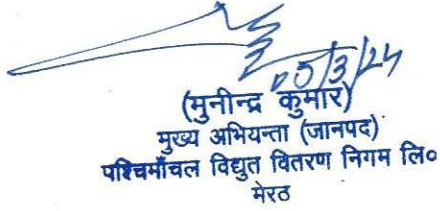 05/3/24
(मुनीन्द्र कुमार)
मुख्य अभियन्ता (जानपद)
पश्चिमाँचल विद्युत वितरण निगम लि०
मेरठ